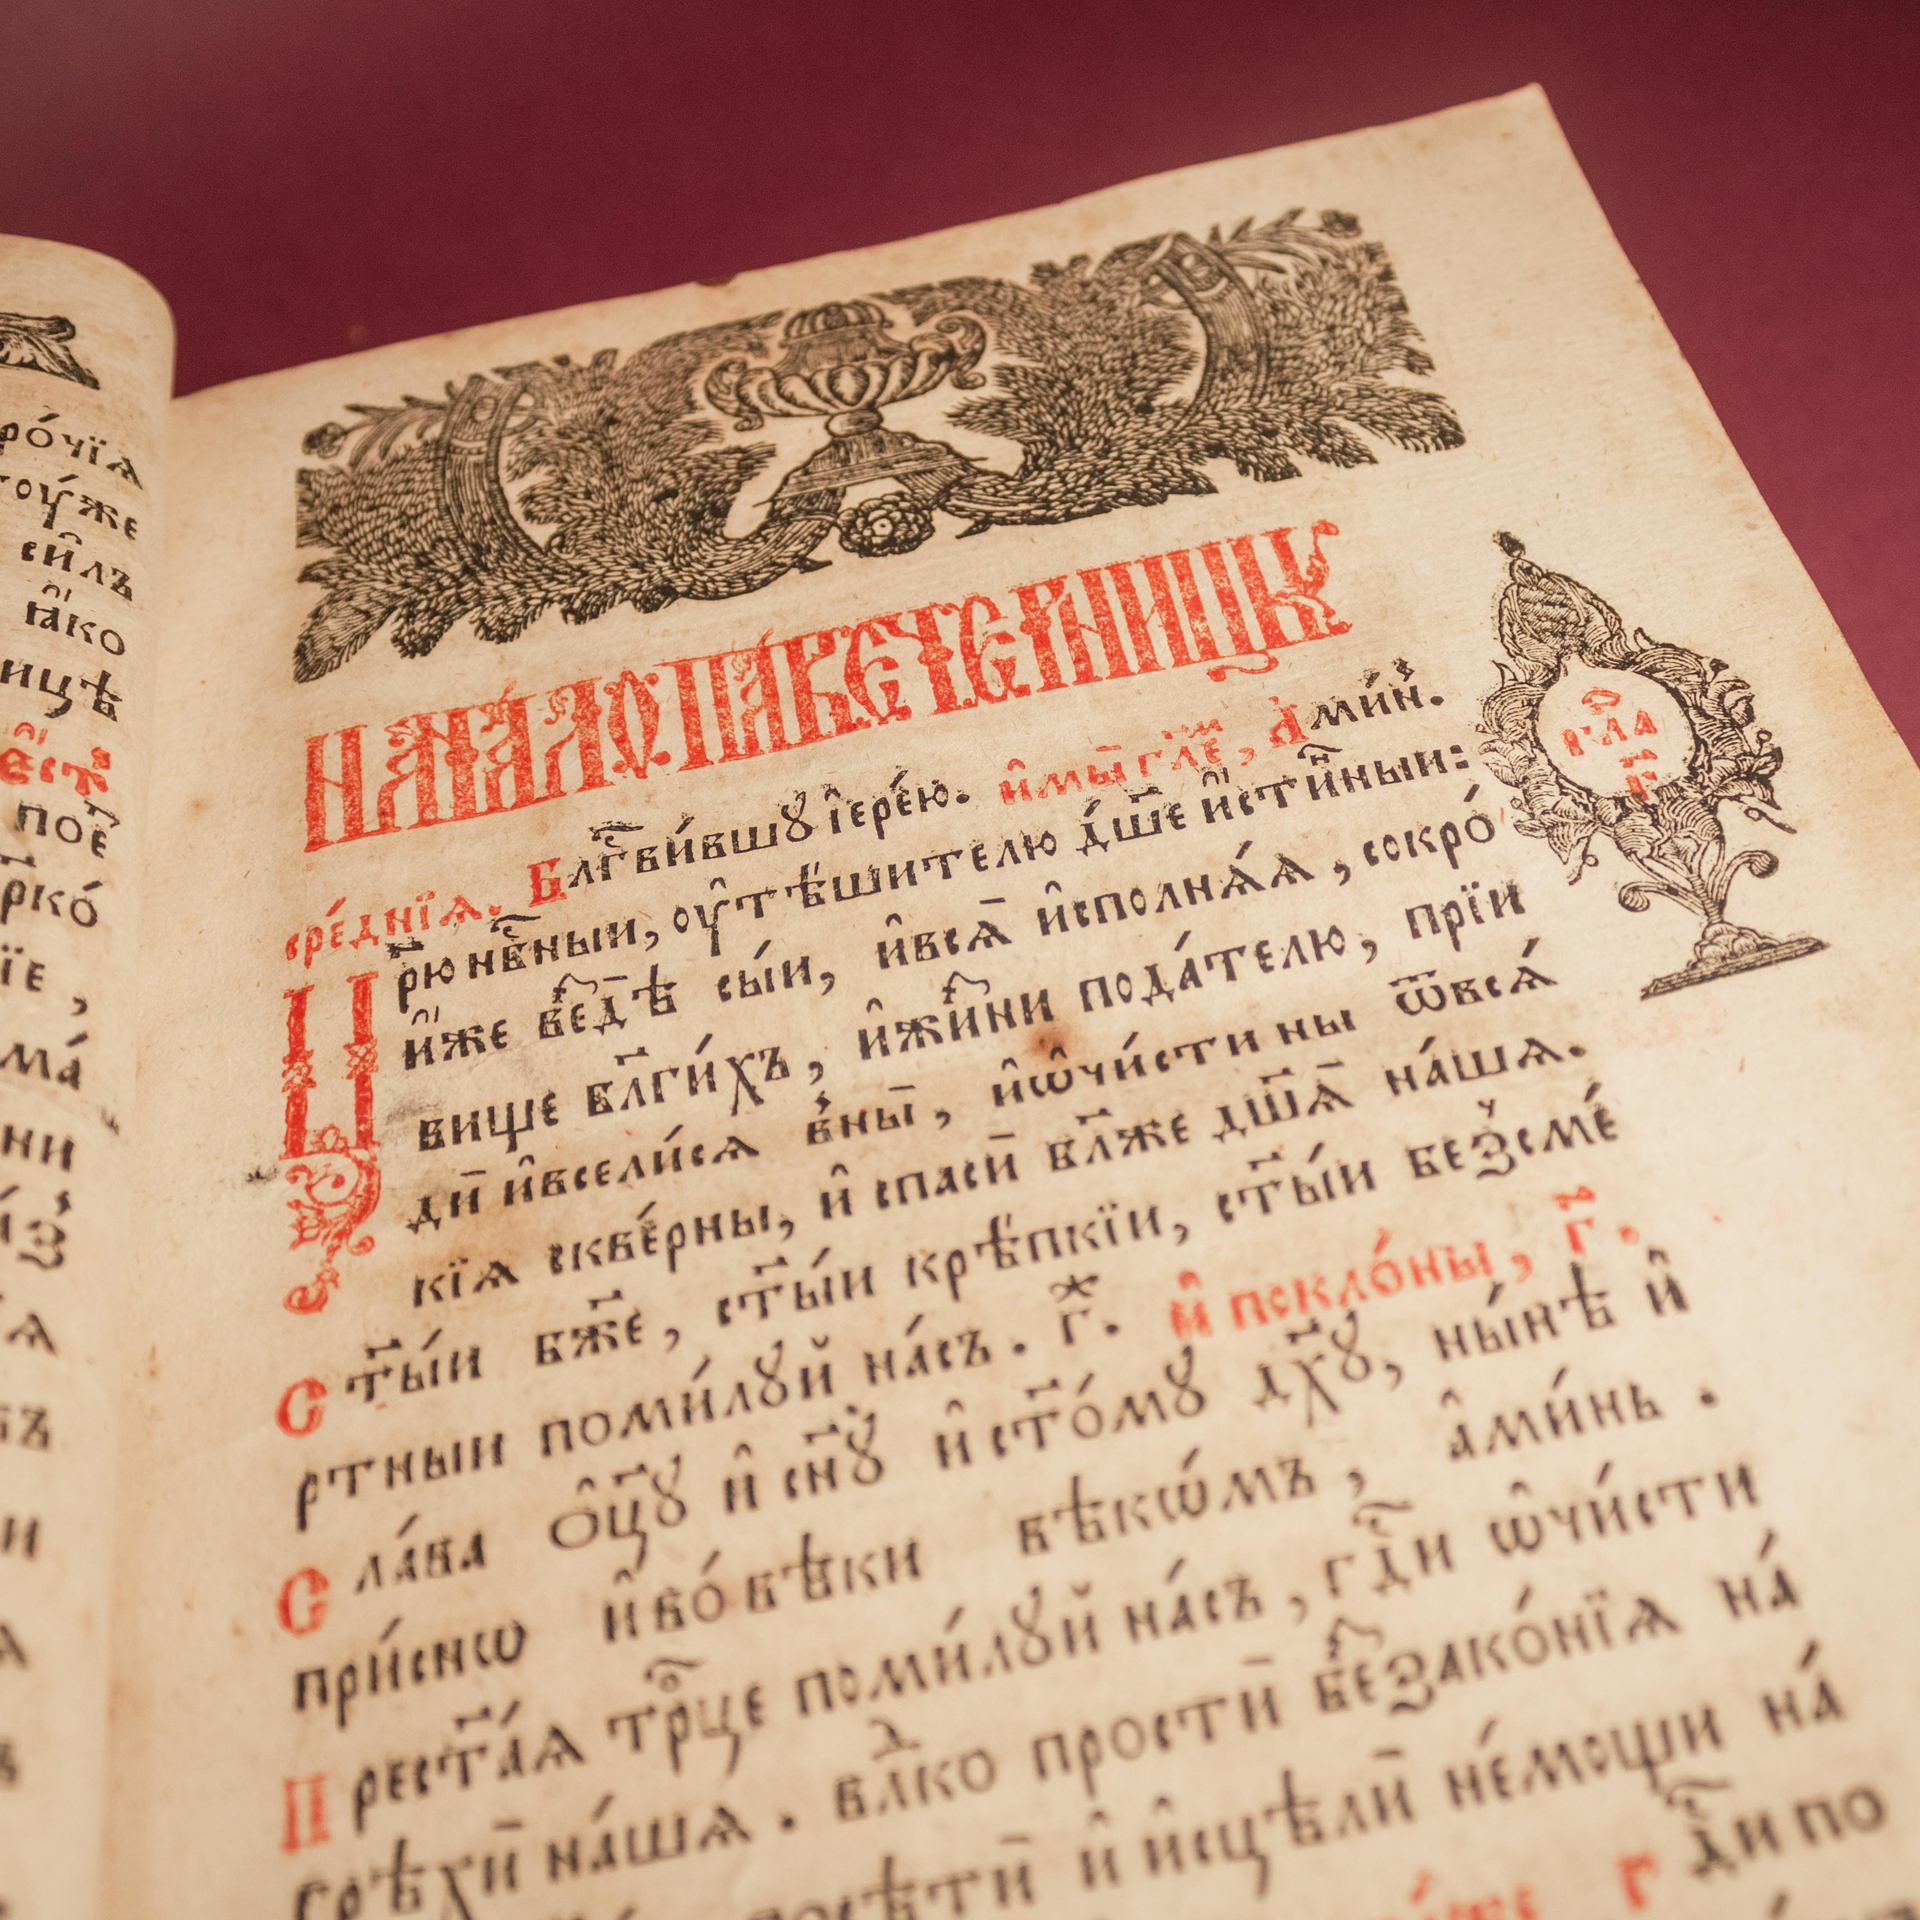 рочїѧ
оу́же
си̑лъ
ꙗ҆́ко
ицѣ
є҆́ст
пое
рко́
їе ,
ма́
ни
НАЧАЛО ПАВЕЧЕРНИЦЫ
сре́днїѧ. Блг҃ви́вшꙋ і҆ере́ю. и҆мы̀ гл҃е , А҆ми́н.
Цр҃ю нб҃ныи, оу҆тѣ́шителю дш҃е и҆́стинныи:
и҆́же вездѣ̀ сы́и, и҆всѧ̑ и҆сполнѧ́ѧ , сокро́
вище бл҃ги́хъ , и҆жи́зни пода́телю, прїи
ди̑ и҆вселисѧ в́ны̑ , и҆ѡ҆чи́сти ны ѿвсѧ́
кїѧ скве́рны, и҆ спаси̑ бл҃же дш҃ѧ̑ на́шѧ.
Ст҃ы́и бж҃е , ст҃ы́и крѣ́пкїи, ст҃ы́и безсме́
ртныи поми́лꙋй на́съ . г҃. и҆ покло́ны , г҃.
Сла́ва ѻ҆ц҃ꙋ и҆ сн҃ꙋ и҆ ст҃о́мꙋ дх҃ꙋ, ны́нѣ и҆
при́снѡ и҆во́ вѣки вѣкѡ́мъ , а҆ми́нь .
Прест҃а́ѧ трⷪ҇це поми́лꙋй на́съ , гдⷭ҇и ѡ҆чи́сти
грѣхи̑ на́шѧ . влⷣко прости̑ беззако́нїѧ на́
посѣти̑ и҆ и҆сцѣли̑ не́мощи на́
г҃ гдⷭ҇и по
гла
г҃